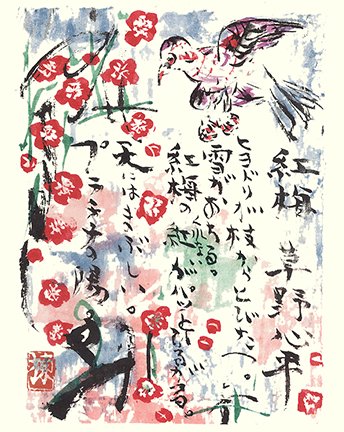 紅梅　草野心平
ヒヨドリが枝からとびたつ
雪がおちる。
紅梅の紅がパッとひろがる。
天にはまぶしい。
プラチナの陽